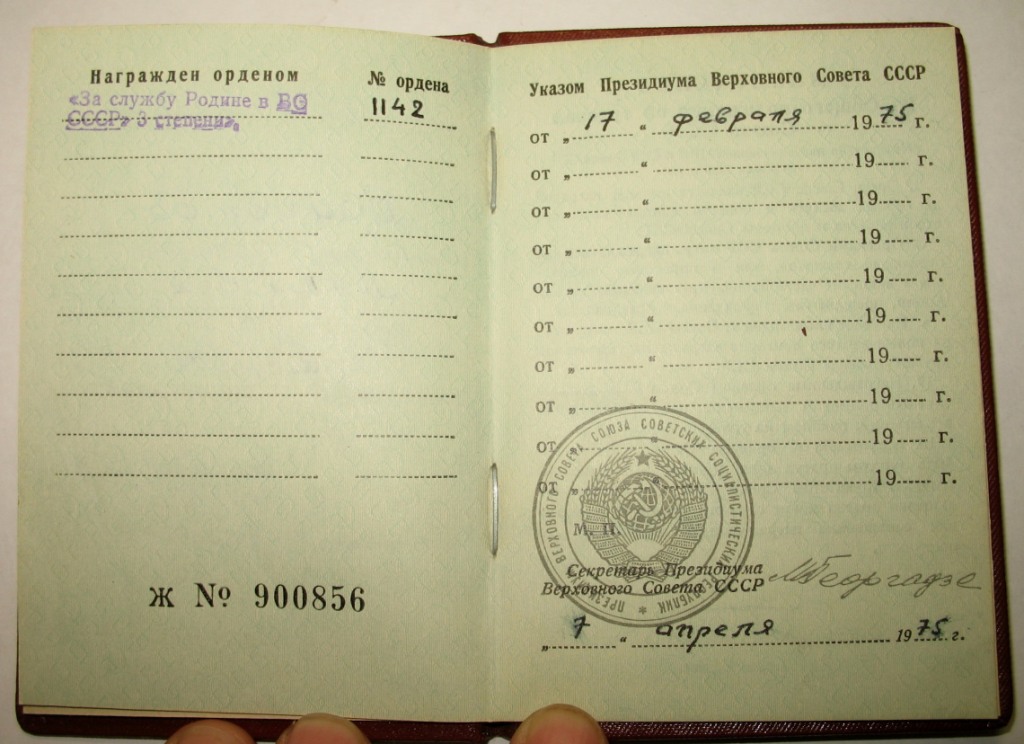 Награжден орденом
№ ордена
«За службу Родине в ВС
СССР» 3 степени
1142
Ж № 900856
Указом Президиума Верховного Совета СССР
от „ 17 “ февраля 1975 г.
от „ “ 19 г.
от „ “ 19 г.
от „ “ 19 г.
от „ “ 19 г.
от „ “ 19 г.
от „ “ 19 г.
от „ “ 19 г.
от „ “ 19 г.
от „ “ 19 г.
М. П.
ПРЕЗИДИУМ ВЕРХОВНОГО СОВЕТА СОЮЗА СОВЕТСКИХ СОЦИАЛИСТИЧЕСКИХ РЕСПУБЛИК
Секретарь Президиума
Верховного Совета СССР
МГеоргадзе
„ 7 “ апреля 1975 г.